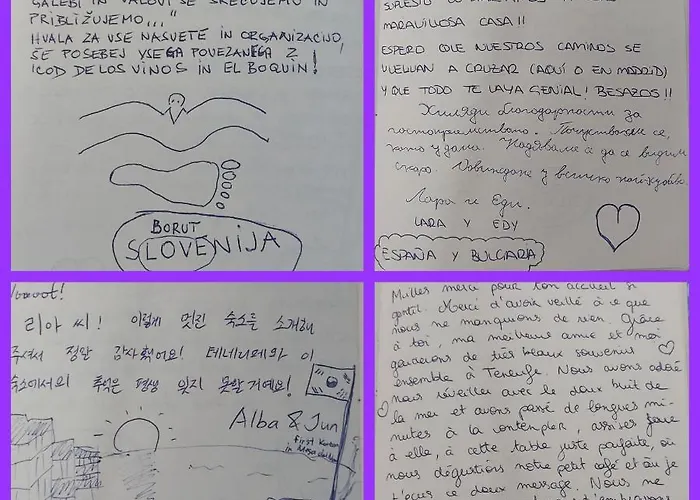 GALEBI IN VALOVI SE SREČUJEMO IN
PRIBLIŽUJEMO..."
HVALA ZA VSE NASVETE IN ORGANIZACIJO,
ŠE POSEBEJ VSEGA POVEZANEGA Z
ICOD DE LOS VINOS IN EL BOQUIN!
BORUT
SLOVENIJA
MARAVILLOSA CASA!!
ESPERO QUE NUESTROS CAMINOS SE
VUELVAN A CRUZAR (AQUÍ O EN MADRID)
Y QUE TODO TE VAYA GENIAL! BESAZOS!!
Хиляди благодарности за
гостоприемството. Почувствахме се,
като у дома. Надяваме се да се видим
скоро. Довиждане и всичко най-хубаво.
Лара и Еди.
LARA Y EDY
ESPAÑA Y BULGARIA
리아 씨! 이렇게 멋진 숙소를 소개해
주셔서 정말 감사했어요! 테네리페와 이
숙소에서의 추억은 평생 잊지 못할거예요!
Alba & Jun
first Korean
in
Milles merci pour ton accueil si
gentil. Merci d'avoir veillé à ce que
nous ne manquions de rien. Grâce
à toi, ma meilleure amie et moi
garderons de très beaux souvenirs
ensemble à Tenerife. Nous avons adoré
nous réveiller avec le doux bruit de
la mer et avons passé de longues mi-
nutes à la contempler, assises face
à elle, à cette table juste parfaite, où
nous dégustions notre petit café et où je
t'écris ce doux message. Nous ne